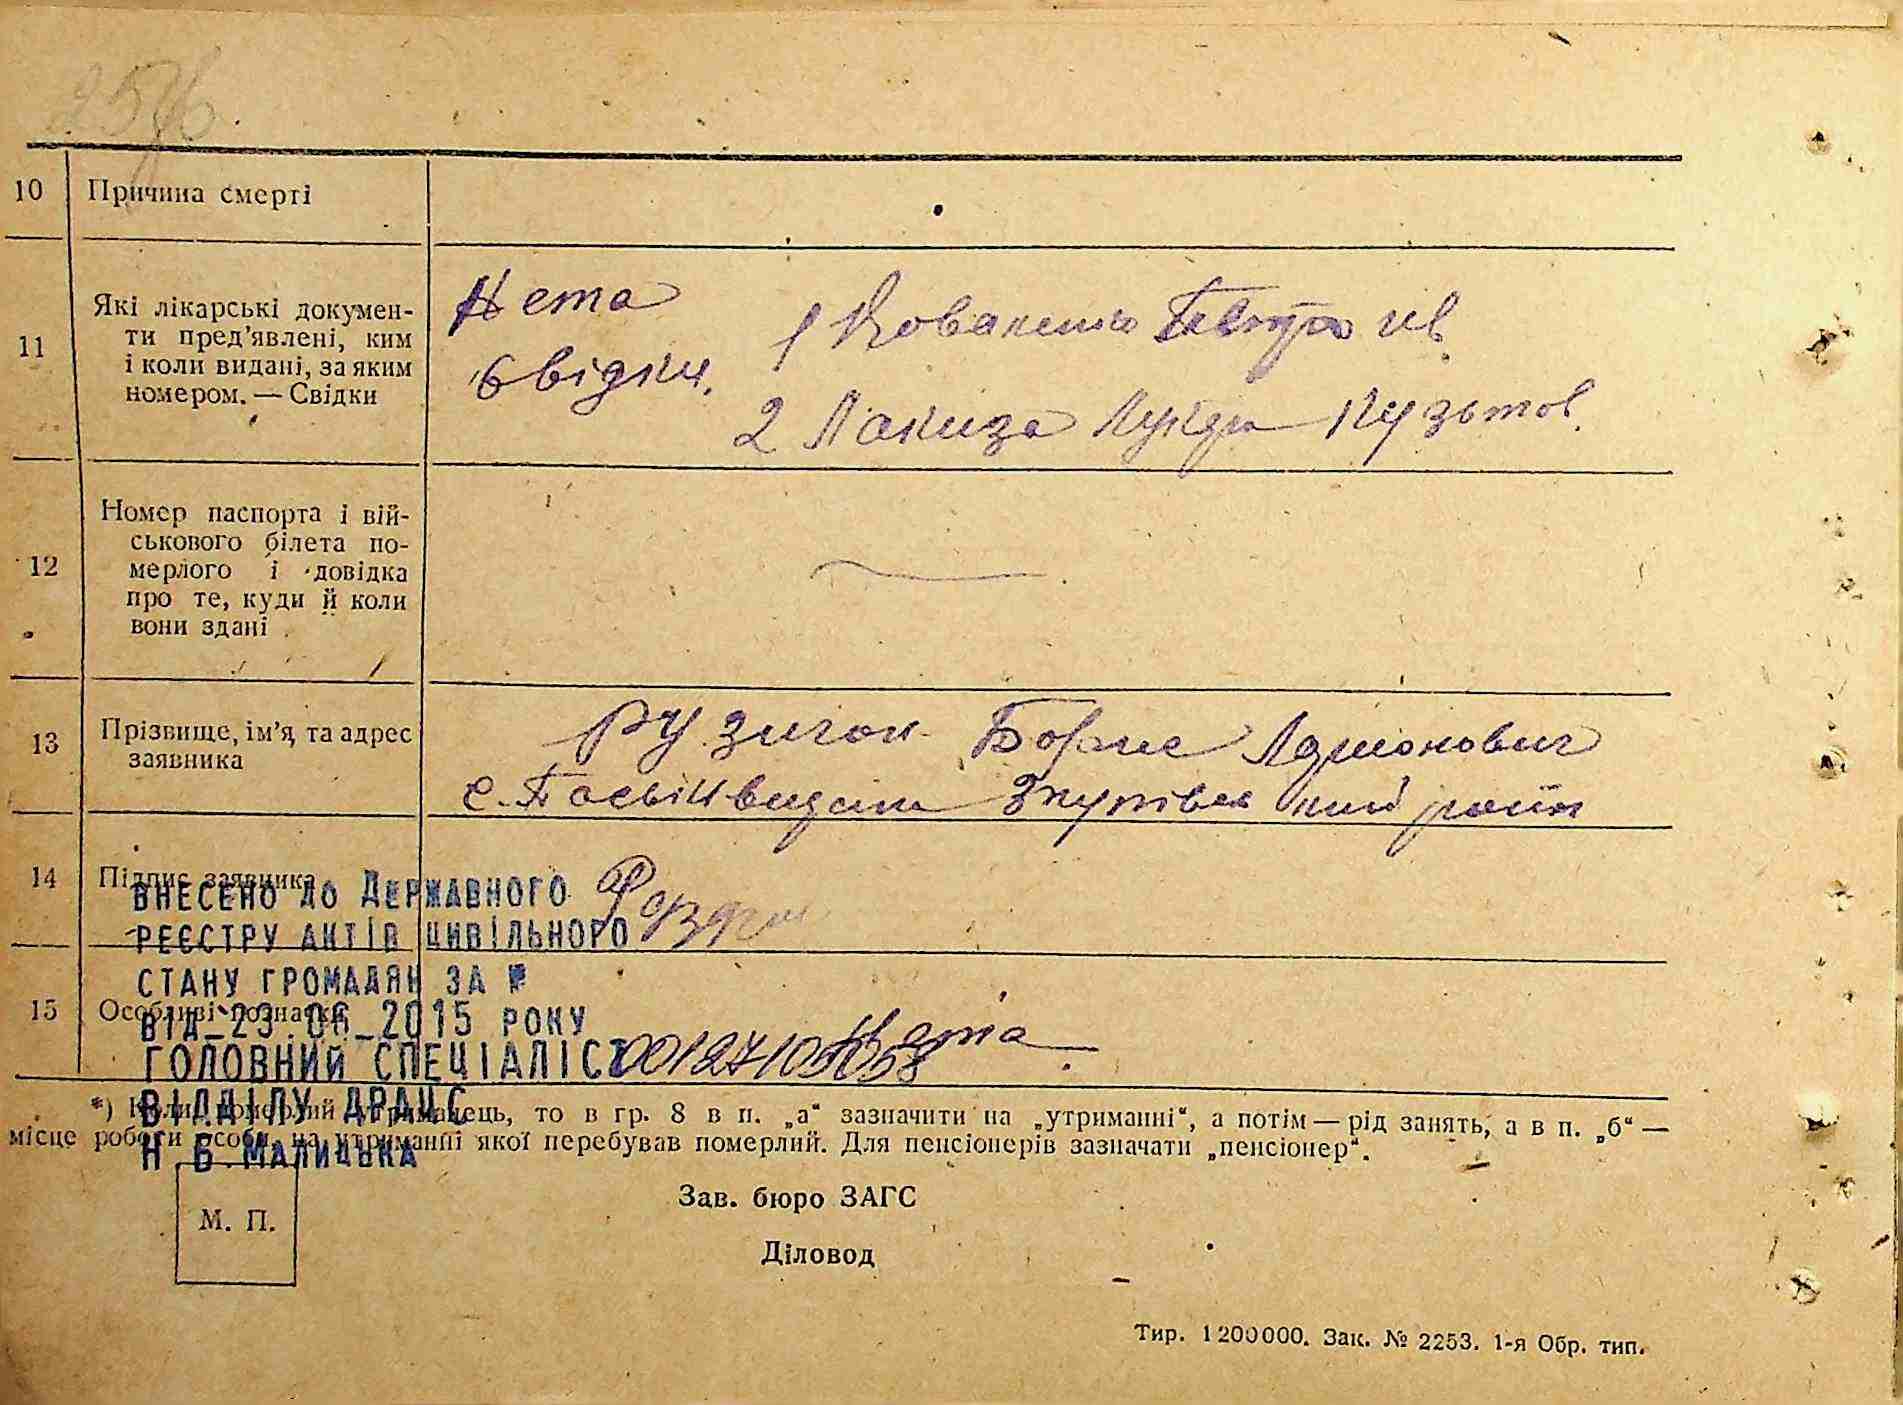 2576.
10 Причина смерті
11 Які лікарські докумен-
ти пред'явлені, ким
і коли видані, за яким
номером. — Свідки
Нета
Свідки.
1 Коваленко
2 Лакиза Лукер Кузьмов.
12 Номер паспорта і вій-
ськового білета по-
мерлого і довідка
про те, куди й коли
вони здані
13 Прізвище, ім'я та адрес
заявника
Рузичок Борис
с. Пасьйовидки Згурівський район
14 Підпис заявника
ВНЕСЕНО ДО ДЕРЖАВНОГО
РЕЄСТРУ АКТІВ ЦИВІЛЬНОГО
СТАНУ ГРОМАДЯН ЗА №
15 Особливі познач
ВІД_23.06_2015 РОКУ
Нета
ГОЛОВНИЙ СПЕЦІАЛІСТ
ВІДДІЛУ ДРАЦС
Н Б МАЛИЦЬКА
*) Коли померлий утриманець, то в гр. 8 в п. „а“ зазначити на „утриманні“, а потім — рід занять, а в п. „б“ —
місце роботи особи, на утриманні якої перебував померлий. Для пенсіонерів зазначати „пенсіонер“.
М. П.
Зав. бюро ЗАГС
Діловод
Тир. 1200000. Зак. № 2253. 1-я Обр. тип.